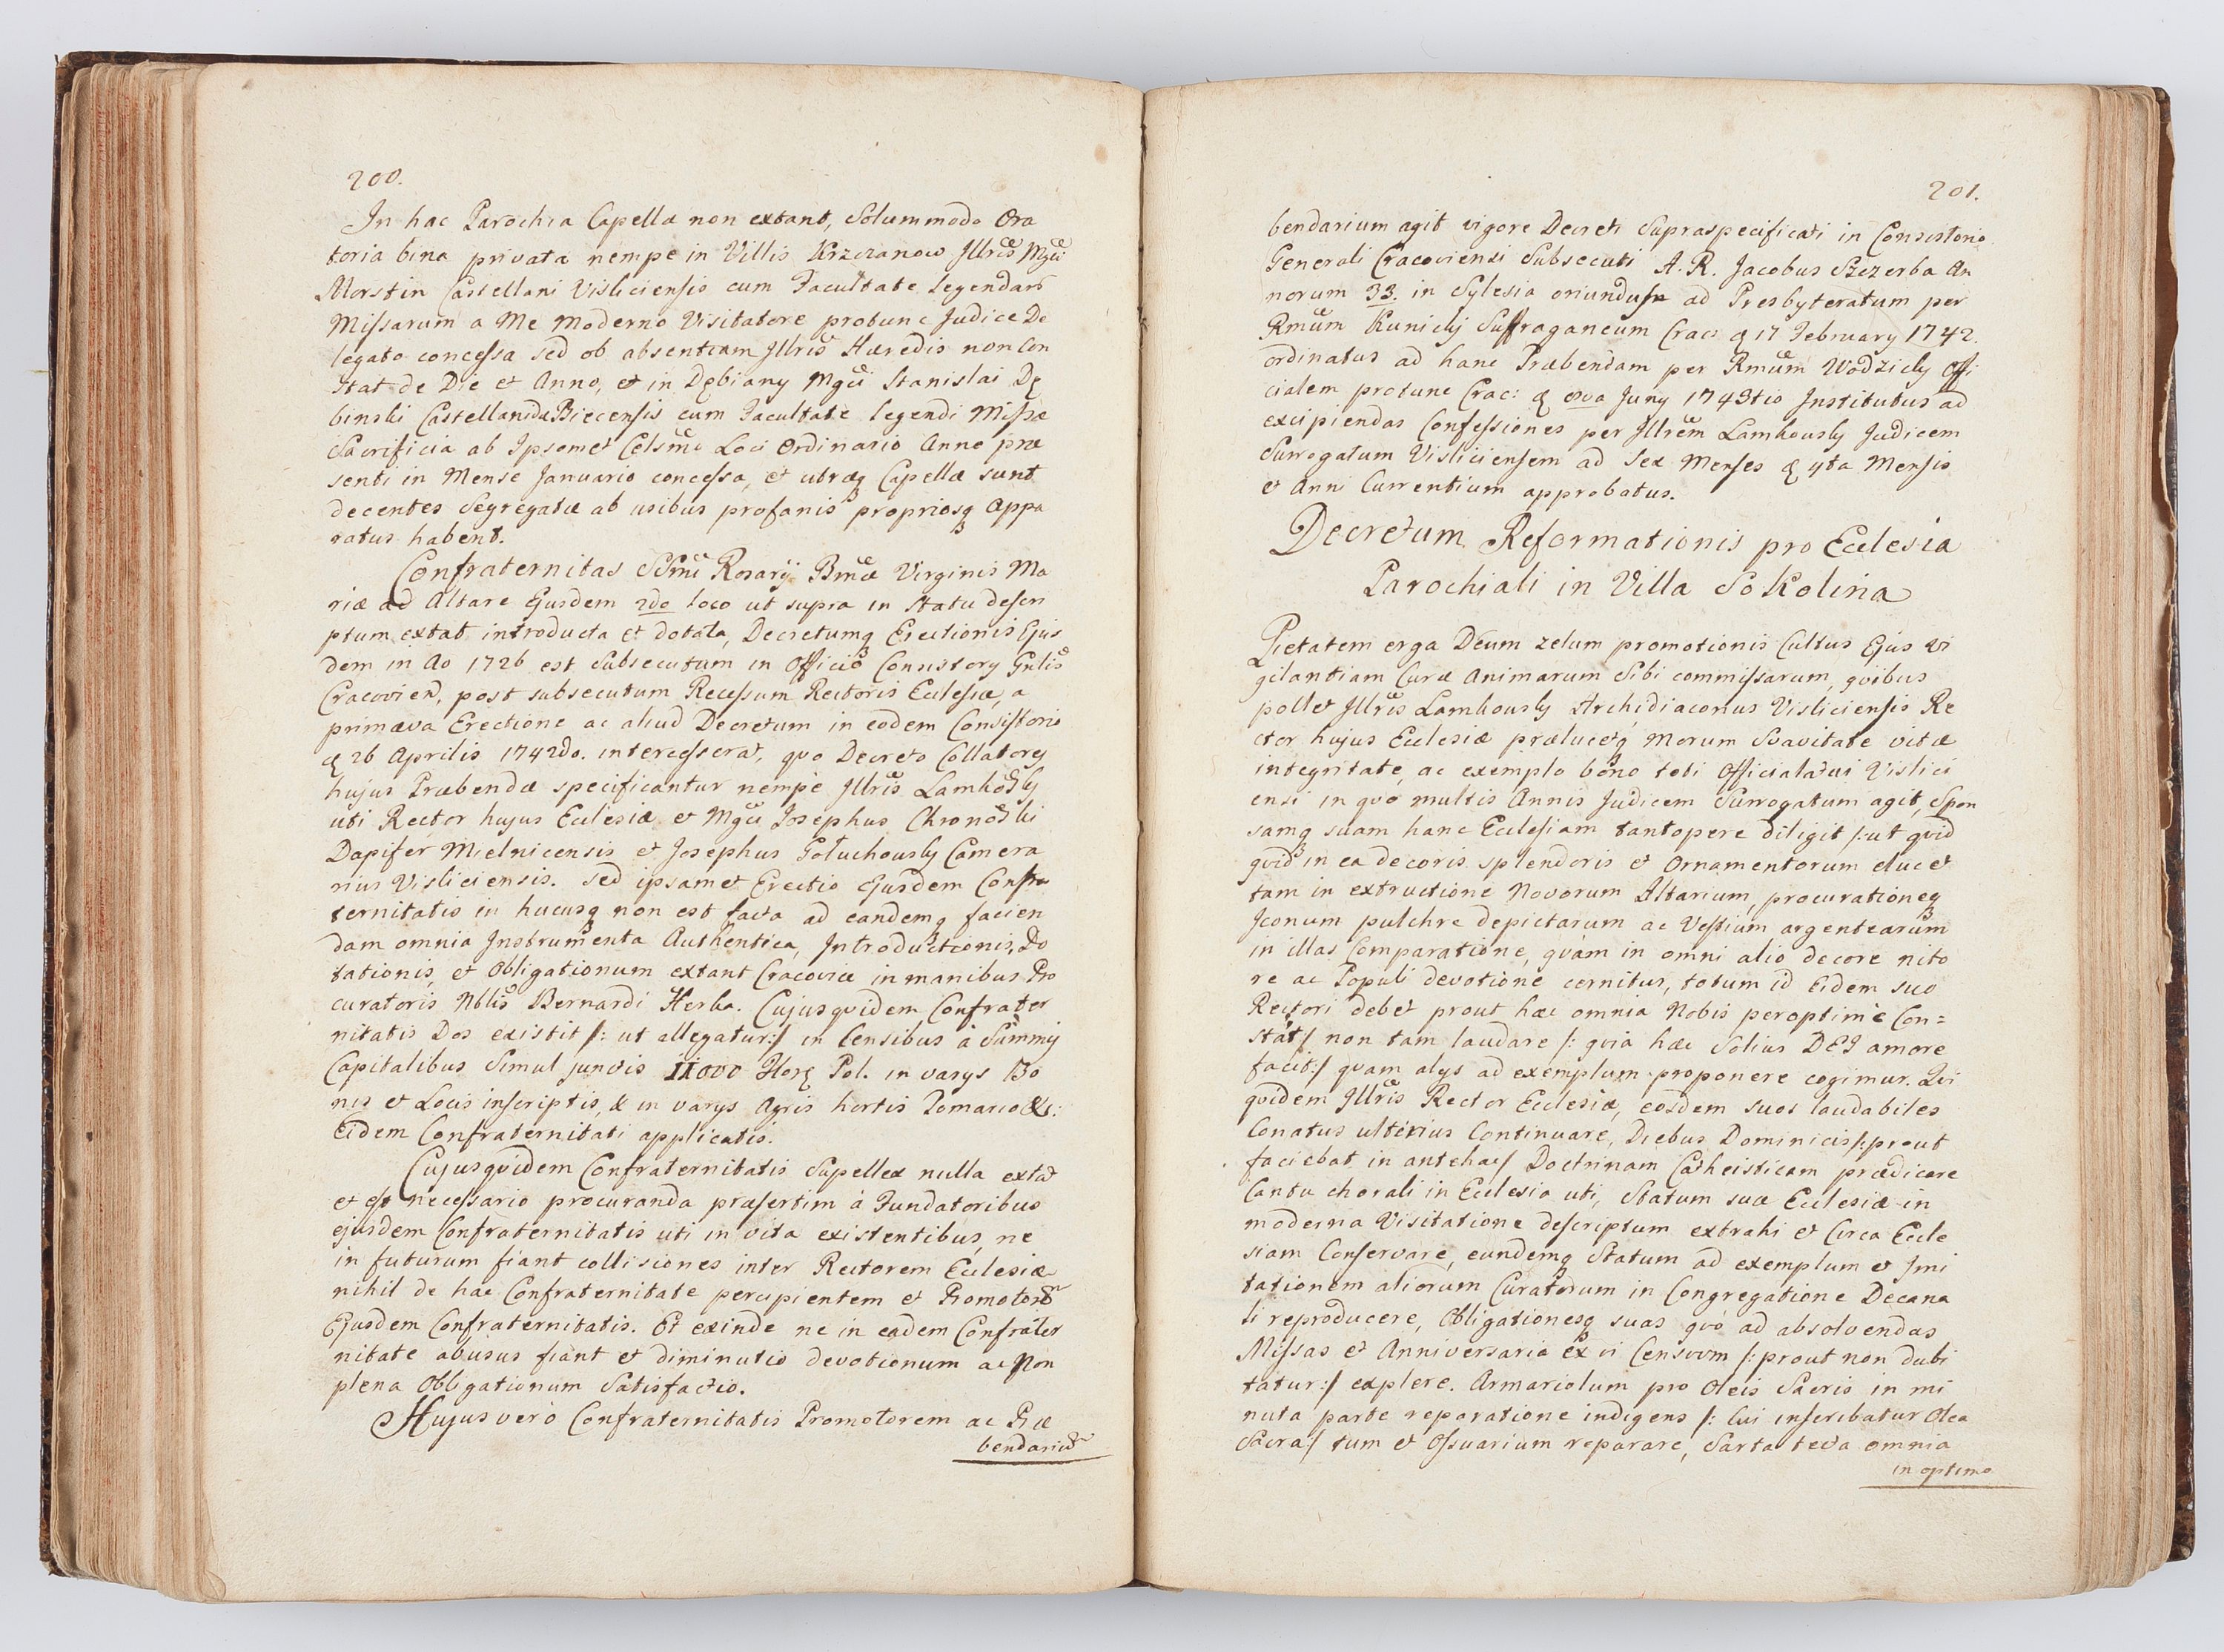 200.
In hac Parochia Capellæ non extant, Solummodo Ora
toria bina privata nempe in Villis Krzczanow Jllris Mgci
Morstin Castellani Visliciensis cum Facultate legendarũ
Missarum a Me Moderno Visitatore protunc Judice De
legato concessa sed ob absentiam Jllris Hæredis non Con
stat de Die et Anno, et in Dębiany Mgci Stanislai Dę
binski Castellanidæ Biecensis cum Facultate legendi Missæ
Sacrificia ab Ipsomet Celsmo Loci Ordinario Anno præ
senti in Mense Januario concessa, et utræq Capellæ sunt
decentes Segregatæ ab usibus profanis propriosq Appa
ratus habent.
Confraternitas SSmi Rosarij Bmæ Virginis Ma
riæ ad Altare Ejusdem 2do loco ut supra in Statu descri
ptum extat introducta et dotata, Decretumq Erectionis Ejus
dem in Ao 1726 est Subsecutum in Officio Consistory Gnlis
Cracovien, post subsecutum Recessum Rectoris Ecclesiæ, a
primæva Erectione ac aliud Decretum in eodem Consistorio
d 26 Aprilis 1742do. intercesserat, quo Decreto Collatores
hujus Præbendæ specificantur nempe Jllris Lamkoski
uti Rector hujus Ecclesiæ et Mgci Josephus Chronoski
Dapifer Mielnicensis et Josephus Gołuchowsky Camera
rius Visliciensis. Sed ipsamet Erectio Ejusdem Confra
ternitatis in hucusq non est facta ad eandemq facien
dam omnia Instrumenta Authentica, Introductionis, Do
tationis, et Obligationum extant Cracoviæ in manibus Pro
curatoris Nblis Bernardi Herka. Cujusquidem Confrater
nitatis Dos existit /: ut allegatur:/ in Censibus à Summis
Capitalibus Simul junctis 11000 flor Pol. in varys Bo
nis et Locis inscriptis, & in varys Agris hortis Pomario &c:
Eidem Confraternitati applicatis.
Cujusquidem Confraternitatis Supellex nulla extat
et est necessario procuranda præsertim à Fundatoribus
ejusdem Confraternitatis uti in vita existentibus, ne
in futurum fiant collisiones inter Rectorem Ecclesiæ
nihil de hac Confraternitate percipientem et Promotorem
Ejusdem Confraternitatis. Et exinde ne in eadem Confrater
nitate abusus fiant et diminutio devotionum ac Non
plena Obligationum Satisfactio.
Hujus verò Confraternitatis Promotorem ac Præ
bendariũ
201.
bendarium agit vigore Decreti Supraspecificati in Consistorio
Generali Cracoviensi Subsecuti A. R. Jacobus Szczerba An
norum 33. in Sylesia oriundus ad Presbyteratum per
Rmum Kunicky Suffraganeum Crac: d 17 February 1742.
ordinatus ad hanc Præbendam per Rmum Wodzicky Offi
cialem protunc Crac: d 8va Juny 1743tio Institutus ad
excipiendas Confessiones per Jllrem Lamkousky Judicem
Surrogatum Visliciensem ad Sex Menses d 4ta Mensis
et Anni Currentium approbatus.
Decretum Reformationis pro Ecclesia
Parochiali in Villa Sokolina
Pietatem erga Deum zelum promotionis Cultus Ejus vi
gilantiam Curæ Animarum Sibi commissarum, quibus
pollet Jllris Lamkousky Archidiaconus Visliciensis Re
ctor hujus Ecclesiæ prælucetq Morum Suavitate vitæ
integritate, ac exemplo bono toti Officialatui Vislici
ensi in quo multis Annis Judicem Surrogatum agit, Spon
samq suam hanc Ecclesiam tantopere diligit /: ut quid
quid in ea decoris splendoris et Ornamentorum elucet
tam in extructione Novorum Altarium, procurationeq
Jconum pulchre depictarum ac Vestium argentearum
in illas Comparatione, quàm in omni alio decore nito
re ac Populi devotione cernitur, totum id Eidem suo
Rectori debet prout hæc omnia Nobis peroptimè Con=
stat/ non tam laudare /: quia hæc Solius DEI amore
facit:/ quam alys ad exemplum proponere cogimur. Qui
quidem Jllris Rector Ecclesiæ, eosdem suos laudabiles
Conatus ulterius Continuare, Diebus Dominicis /: prout
faciebat in antehac/ Doctrinam Catheisticam prædicare
Cantu chorali in Ecclesia uti, Statum suæ Ecclesiæ in
moderna Visitatione descriptum extrahi et Circa Eccle
siam Conservare, eundemq Statum ad exemplum et Imi
tationem aliorum Curatorum in Congregatione Decana
li reproducere, Obligationesq suas quò ad absolvendas
Missas et Anniversaria ex vi Censuum /: prout non dubi
tatur:/ explere. Armariolum pro Oleis Sacris in mi
nuta parte reparatione indigens /: Cui inscribatur Olea
Sacra:/ tum et Ossuarium reparare, Sarta tecta omnia
in optimo